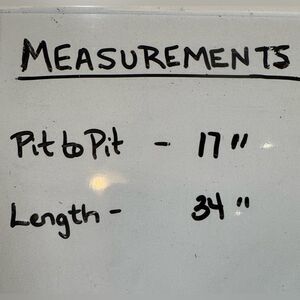 MEASUREMENTS
Pit to Pit - 17"
Length - 34"